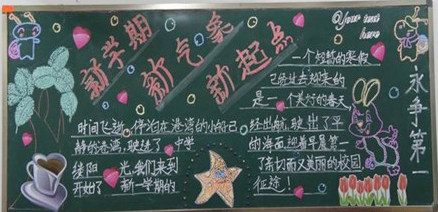 新学期
新气象
新起点
Your text
here
一个短暂的寒假
已经过去迎来的
是一个美好的春天
时间飞逝,停泊在港湾的小船已
经出航,驶出了平
静的港湾,驶进了
的海面迎着早晨第一
缕阳光,我们来到
了亲切而又美丽的校园
开始了新一学期的
征途!
永争第一